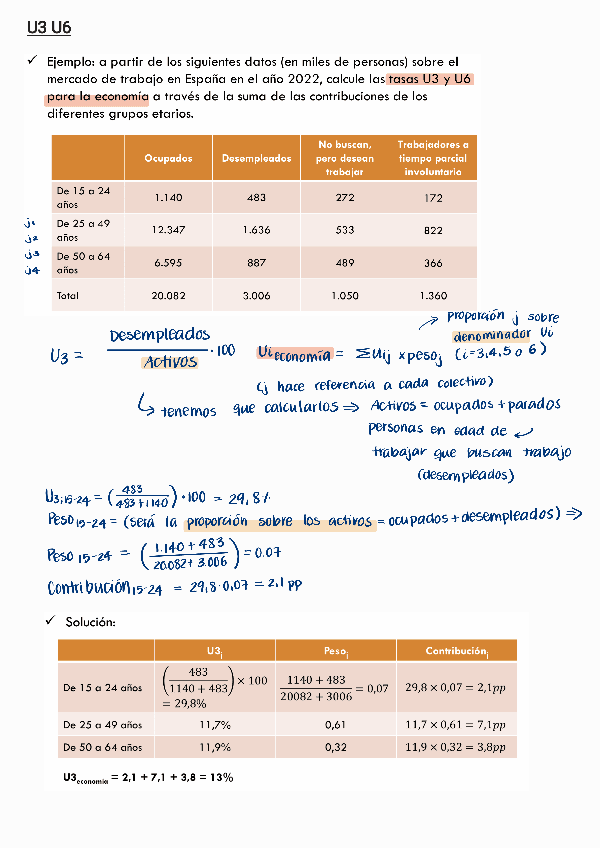 U3 U6
✓ Ejemplo: a partir de los siguientes datos (en miles de personas) sobre el
mercado de trabajo en España en el año 2022, calcule las tasas U3 y U6
para la economía a través de la suma de las contribuciones de los
diferentes grupos etarios.
Ocupados Desempleados No buscan, pero desean trabajar Trabajadores a tiempo parcial involuntario
De 15 a 24 años 1.140 483 272 172
j1 De 25 a 49 años 12.347 1.636 533 822
j2
j3 De 50 a 64 años 6.595 887 489 366
j4
Total 20.082 3.006 1.050 1.360
U3 = Desempleados / Activos · 100
Ui economía = Σuij x pesoj (i=3,4,5 o 6)
→ proporción j sobre
denominador Ui
(j hace referencia a cada colectivo)
↳ tenemos que calcularlos ⇒ Activos = ocupados + parados
personas en edad de ↵
trabajar que buscan trabajo
(desempleados)
U3,15-24 = (483 / 483+1140) · 100 = 29,8%
Peso 15-24 = (será la proporción sobre los activos = ocupados + desempleados) ⇒
Peso 15-24 = (1.140 + 483 / 20.082 + 3.006) = 0.07
Contribución 15-24 = 29,8 · 0,07 = 2,1 pp
✓ Solución:
U3j Pesoj Contribuciónj
De 15 a 24 años (483 / 1140 + 483) × 100 = 29,8% 1140 + 483 / 20082 + 3006 = 0,07 29,8 × 0,07 = 2,1pp
De 25 a 49 años 11,7% 0,61 11,7 × 0,61 = 7,1pp
De 50 a 64 años 11,9% 0,32 11,9 × 0,32 = 3,8pp
U3economía = 2,1 + 7,1 + 3,8 = 13%